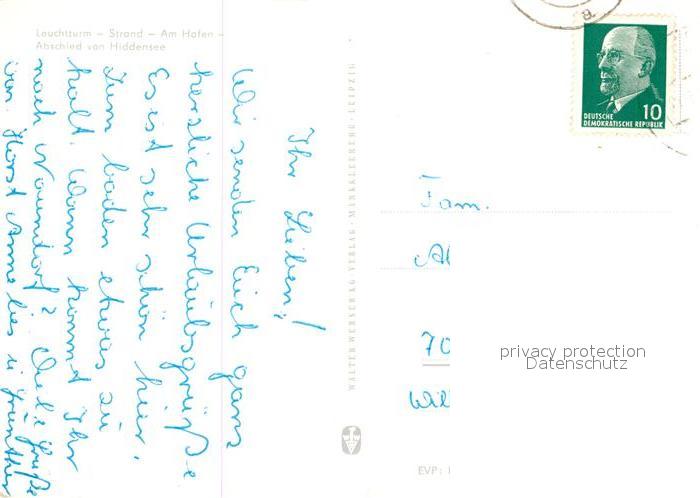 Leuchtturm – Strand – Am Hafen –
Abschied von Hiddensee
Ihr Lieben!
Wir senden Euch ganz
herzliche Urlaubsgrüße.
Es ist sehr schön hier,
zum baden etwas zu
kalt. Wann kommt Ihr
nach Naundorf? Viele Grüße
von Horst Annelies u Günther
WALTER WERNER KG VERLAG · MARKKLEEBERG · LEIPZIG
DEUTSCHE
DEMOKRATISCHE REPUBLIK
10
Fam.
70
EVP:
privacy protection
Datenschutz